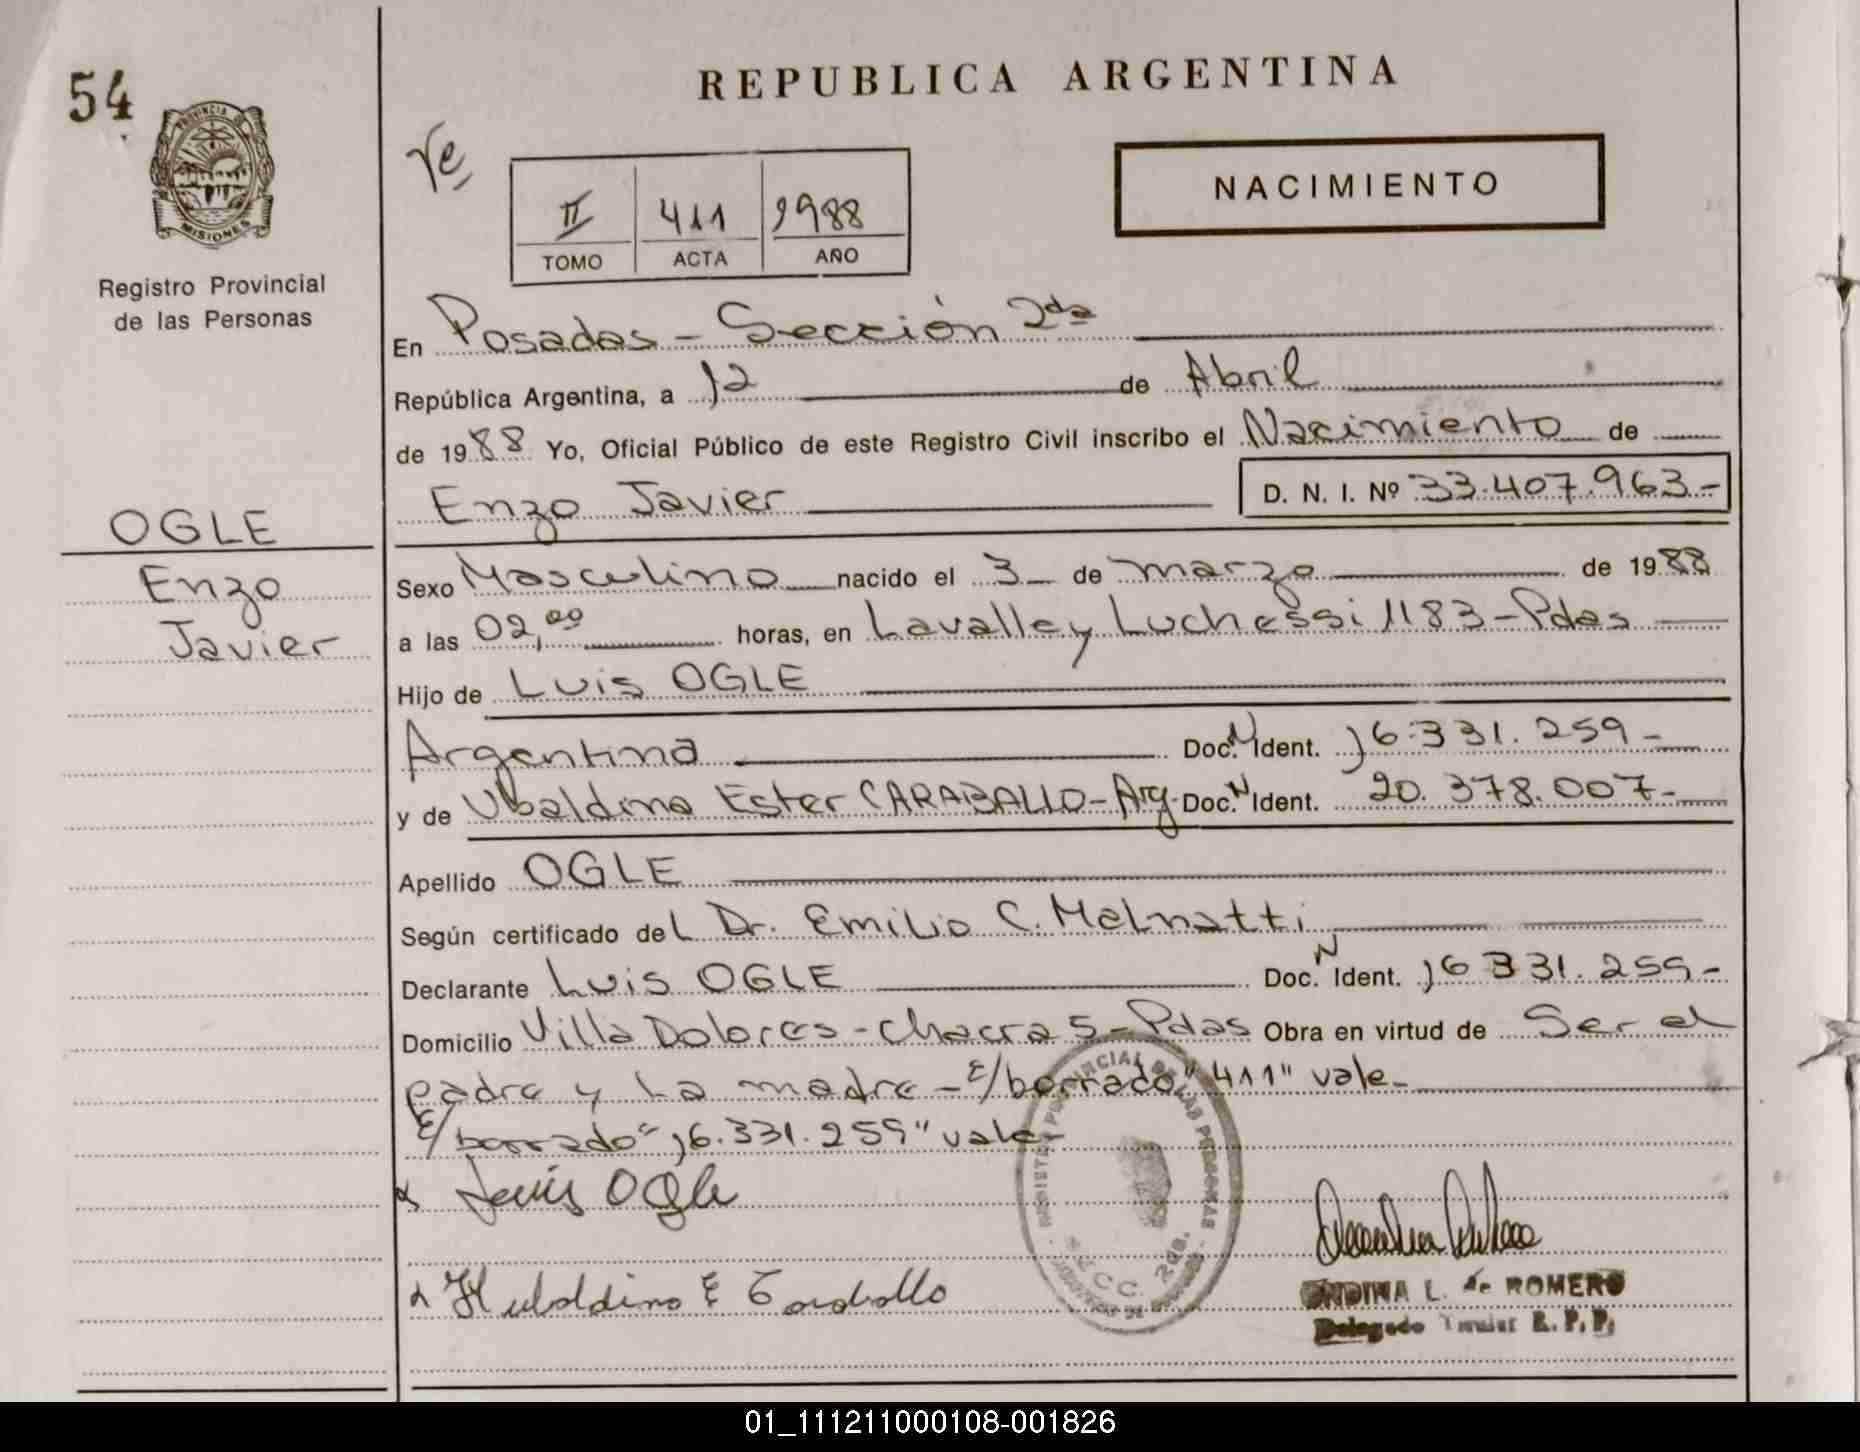 54
REPUBLICA ARGENTINA
PROVINCIA DE
MISIONES
Registro Provincial
de las Personas
II 411 1988
TOMO ACTA AÑO
NACIMIENTO
En Posadas - Sección 2da
República Argentina, a 12 de Abril
de 1988 Yo, Oficial Público de este Registro Civil inscribo el Nacimiento de
Enzo Javier D. N. I. Nº 33.407.963-
OGLE
Enzo
Javier
Sexo Masculino nacido el 3 de marzo de 1988
a las 02,00 horas, en Lavalle y Luchessi 1183 - Pdas
Hijo de Luis OGLE
Argentino Doc. N Ident. 16.331.259-
y de Ubaldina Ester CARABALLO - Arg. Doc. N Ident. 20.378.007-
Apellido OGLE
Según certificado del Dr. Emilio C. Malnatti
Declarante Luis OGLE Doc. N Ident. 16 331.259-
Domicilio Villa Dolores - Chacra 5 - Pdas Obra en virtud de Ser el
padre y la madre - E/borrado "411" vale-
E/borrado "16.331.259" vale-
Luis Ogle
Hubaldina E Caraballo
ONDINA L. de ROMERO
Delegado Titular R. P. P.
01_111211000108-001826